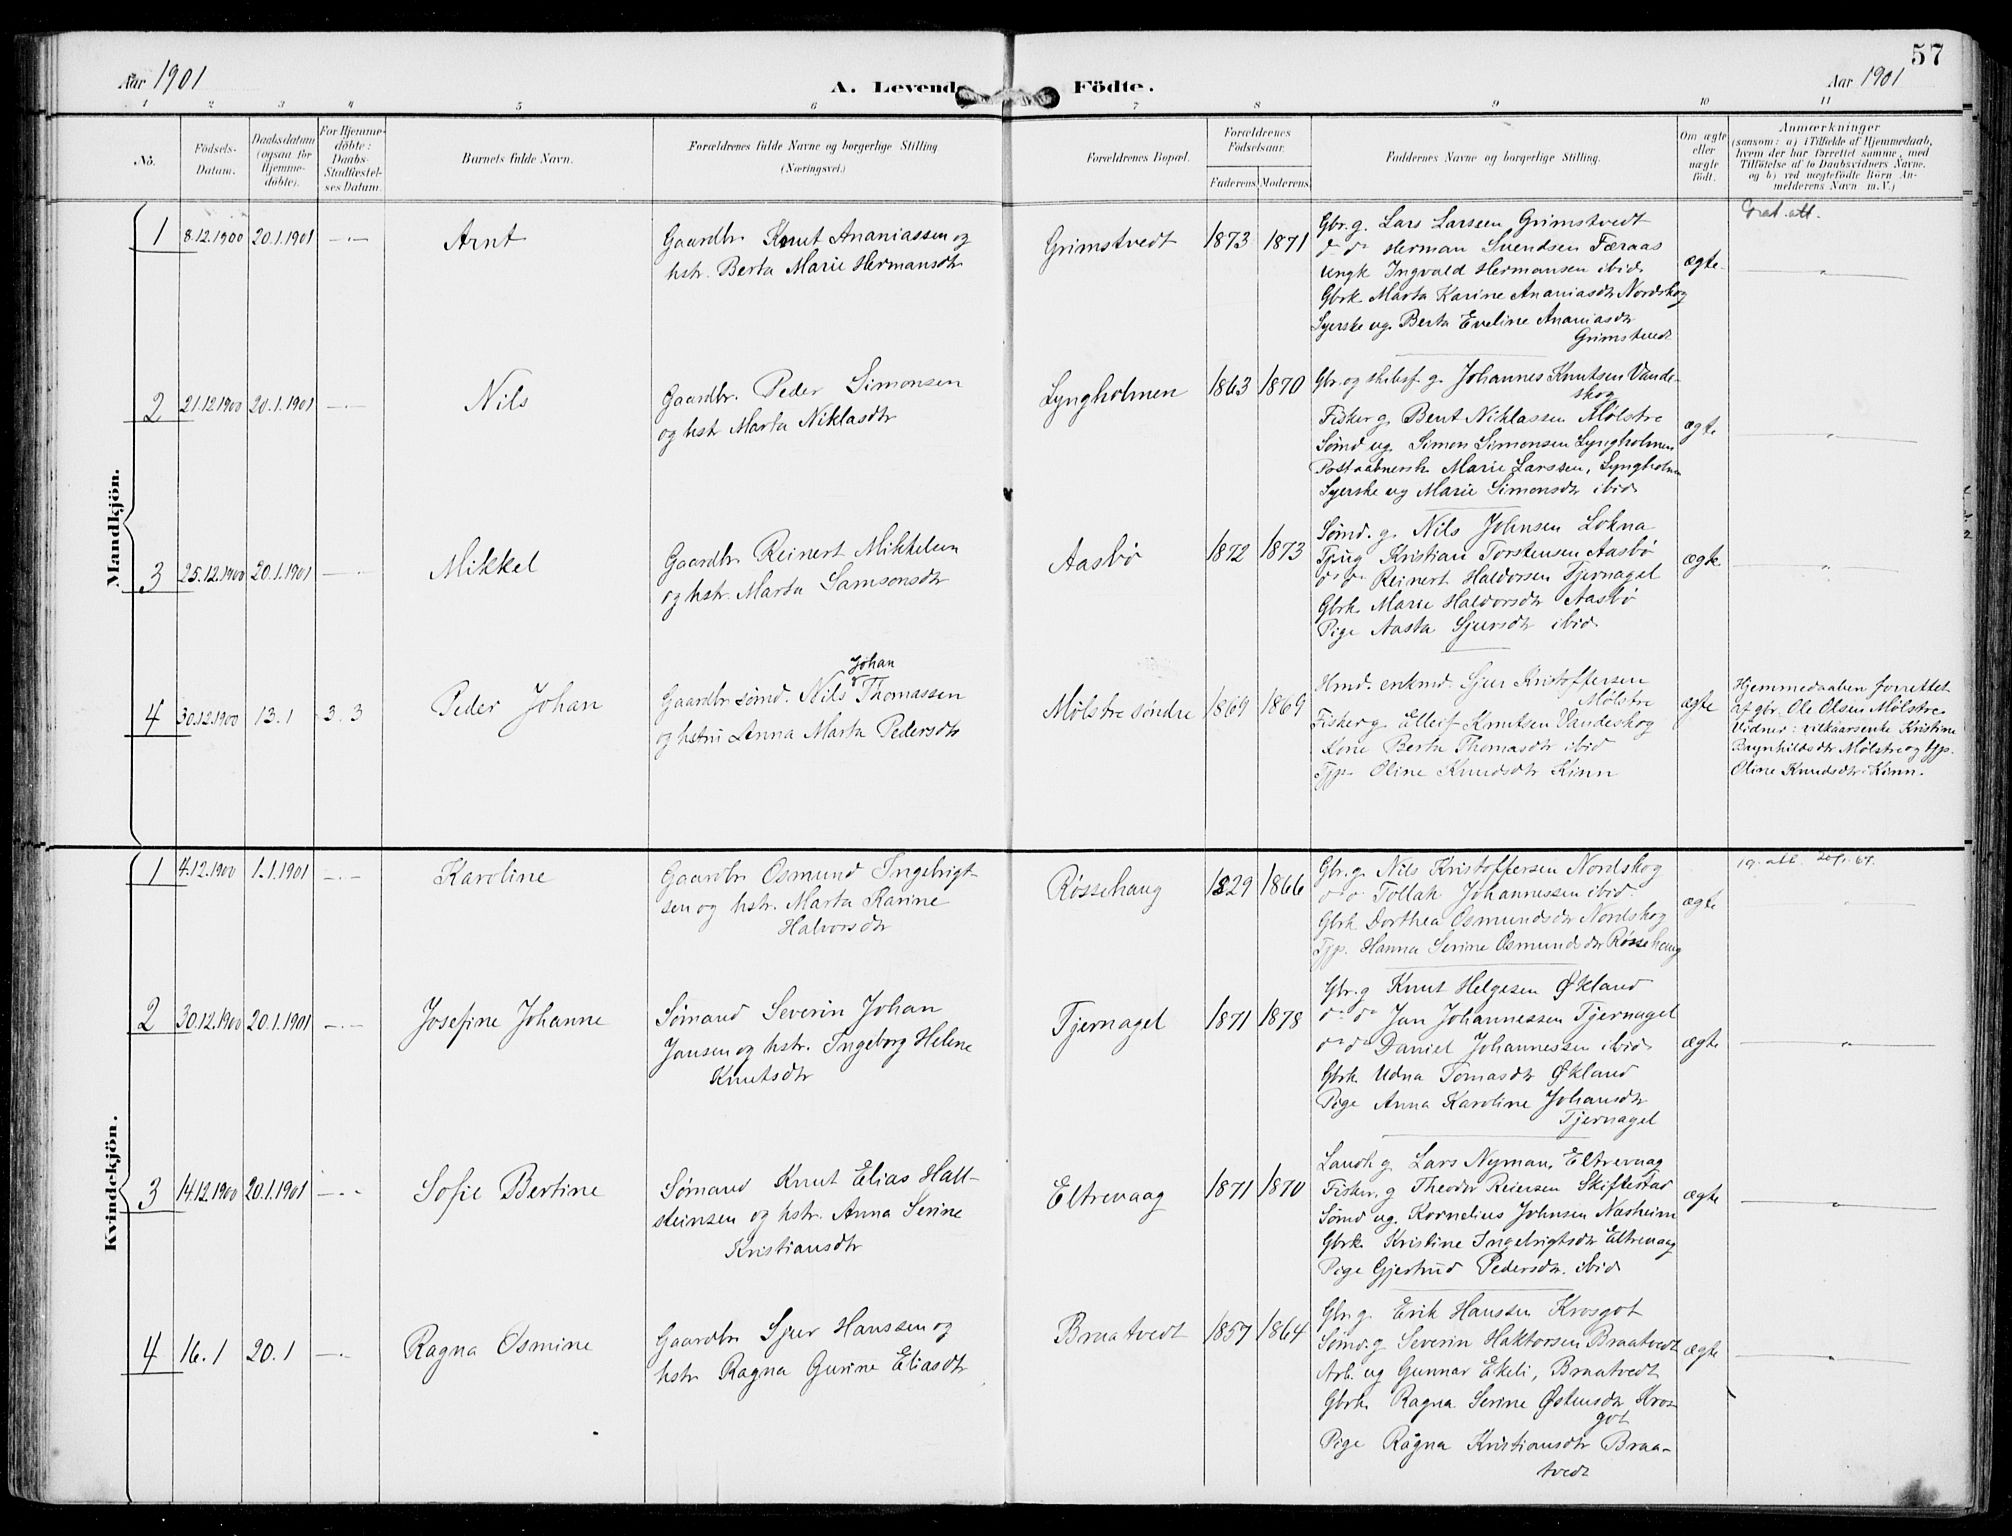 57
Aar 1901
A. Levende Födte.
Aar 1901
1 2 3 4 5 6 7 8 9 10 11
No.
Födsels-
Datum.
Daabsdatum
(ogsaa for
Hjemme-
döbte).
For Hjemme-
döbte:
Daabs-
Stadfæstel-
ses Datum.
Barnets fulde Navn.
Forældrenes fulde Navne og borgerlige Stilling
(Næringsvei.)
Forældrenes Bopæl.
Forældrenes
Födselsaar.
Faderens Moderens
Faddernes Navne og borgerlige Stilling.
Om ægte
eller
uægte
født.
Anmærkninger
(saasom: a) i Tilfælde af Hjemmedaab,
hvem der har forrettet samme, med
Tilføielse af to Daabsvidners Navne.
og b) ved uægtefødte Börn An-
melderens Navn m. V.)
Mandkjön.
1 8.12.1900 20.1.1901 —·—
Arnt
Gaardbr. Knut Ananiassen og
hstr. Berta Marie Hermansdtr
Grimstvedt
1873 1871
Gbr. g. Lars Larssen Grimstvedt
do do Herman Svendsen Færaas
Ungk Ingvald Hermansen ibid.
Gbrk Marta Karine Ananiasdtr Nordskog
Syerske ug. Berta Eveline Ananiasdtr
Grimstvedt
ægte
— " —
2 21.12.1900 20.1.1901 —·—
Nils
Gaardbr. Peder Simonsen
og hstr Marta Niklasdtr
Lyngholmen
1863 1870
Gbr. og g. Johannes Knutsen Vande-
skog
Fisker g. Bent Niklassen Mølstre
Sømd ug. Simon Simonsen Lyngholmen
Postaabnersk. Marie Larssen, Lyngholmen
Syerske ug Marie Simonsdtr ibid.
ægte
— " —
3 25.12.1900 20.1.1901 —·—
Mikkel
Gaardbr Reinert Mikkelsen
og hstr. Marta Samsonsdtr
Aasbø
1872 1873
Sømd. g. Nils Johnsen Lokna
Tj.ug Kristian Torstensen Aasbø
do do Reinert Haldorsen Tjernagel
Gbrk. Marie Haldorsdtr Aasbø
Pige Aasta Sjursdtr ibid.
ægte
— " —
4 30.12.1900 13.1 3.3
Peder Johan
Johan
Gaardbr sømd. Nils Thomassen
og hstru Anna Marta Pedersdtr
Mølstre søndre
1869 1869
Hmd. enkmd. Sjur Kristoffersen
Mølstre
Fisker g. Elleif Knutsen Vandeskog
Kone Berta Thomasdtr ibid
Tjp. Oline Knudsdtr Kinn
ægte
Hjemmedaaben forrettet
af gbr. Ole Olsen Mølstre.
Vidner: vilkaarsenke Kristine
Brynhildsdtr Mølstre og tjp.
Oline Knudsdtr Kinn.
Kvindekjön.
1 4.12.1900 1.1.1901 —·—
Karoline
Gaardbr Osmund Ingebrigt-
sen og hstr. Marta Karine
Halvorsdtr
Røssehaug
1829 1866
Gbr. g. Nils Kristoffersen Nordskog
do do Tollak Johannessen ibid.
Gbrk Dorthea Osmundsdtr Nordskog
Tjp. Hanna Serine Osmundsdtr Røssehaug
ægte
2 30.12.1900 20.1.1901 —·—
Josefine Johanne
Sømand Severin Johan
Jansen og hstr. Ingeborg Helene
Knutsdtr
Tjernagel
1871 1878
Gbr. g Knut Helgesen Økland
do do Jan Johannessen Tjernagel
do do Daniel Johannessen ibid.
Gbrk Udna Tomasdtr Økland
Pige Anna Karoline Johansdtr
Tjernagel
ægte
— " —
3 14.12.1900 20.1.1901 —·—
Sofie Bertine
Sømand Knut Elias Hall-
steinsen og hstr. Anna Serine
Kristiansdtr
Eltrevaag
1871 1870
Landh. g. Lars Nyman, Eltrevaag
Fisker. g Theodor Reiersen Skiftestad
Sømd ug. Kornelius Johnsen Næsheim
Gbrk. Kristine Ingebrigtsdtr Eltrevaag
Pige Gjertrud Pedersdtr. ibid
ægte
— " —
4 16.1 20.1 —·—
Ragna Osmine
Gaardbr Sjur Hanssen og
hstr Ragna Gurine Eliasdtr
Braatvedt
1857 1864
Gbr. g. Erik Hanssen Krosgot
Sømd. g Severin Haktorsen Braatvedt
Arb. ug Gunnar Ekeli, Braatvedt
Gbrk. Ragna Serine Østensdtr Kros-
got
Pige Ragna Kristiansdtr Braa-
tvedt
ægte
— " —